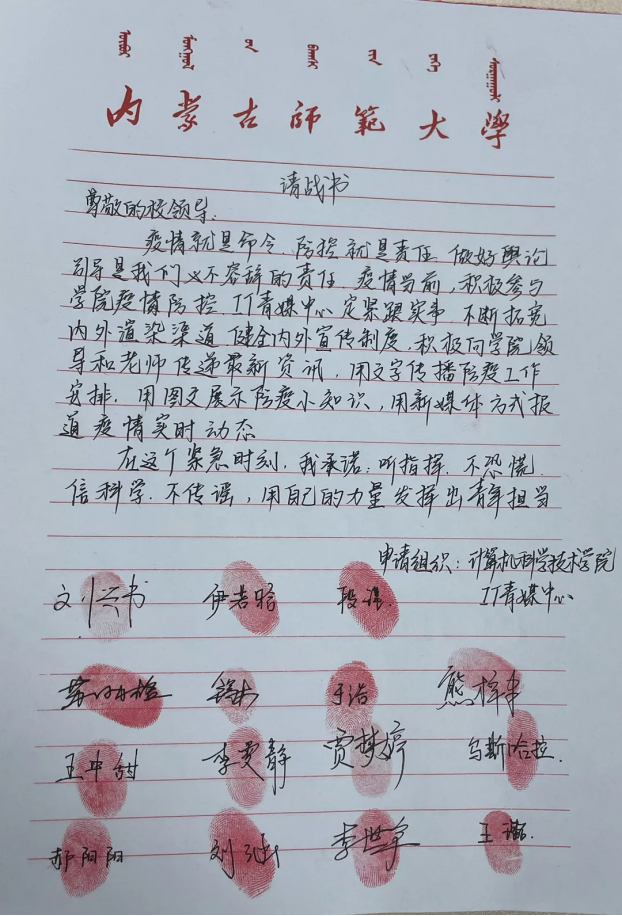 内蒙古师范大学
请战书
尊敬的校领导.
疫情就是命令.防控就是责任.做好舆论
引导是我们义不容辞的责任.疫情当前,积极参与
学院疫情防控 IT青媒中心定紧跟实事 不断拓宽
内外渲染渠道 健全内外宣传制度.积极向学院领
导和老师传递最新资讯,用文字传播防疫工作
安排.用图文展示防疫小知识,用新媒体方式报
道疫情实时动态
在这个紧急时刻.我承诺:听指挥.不恐慌.
信科学.不传谣,用自己的力量发挥出青年担当
申请组织:计算机科学技术学院
IT青媒中心
段
于浩 熊梓
王中 李雯静 贾梦婷 乌斯哈拉.
郝阳阳 刘 李世 王